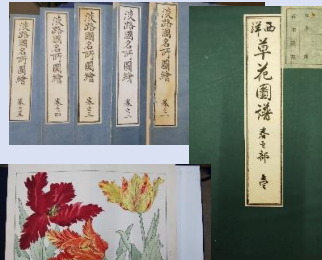 淡路國名所圖繪 卷之五
淡路國名所圖繪 卷之四
淡路國名所圖繪 卷之三
淡路國名所圖繪 卷之二
淡路國名所圖繪 卷之一
西洋草花圖譜 春之部 壹